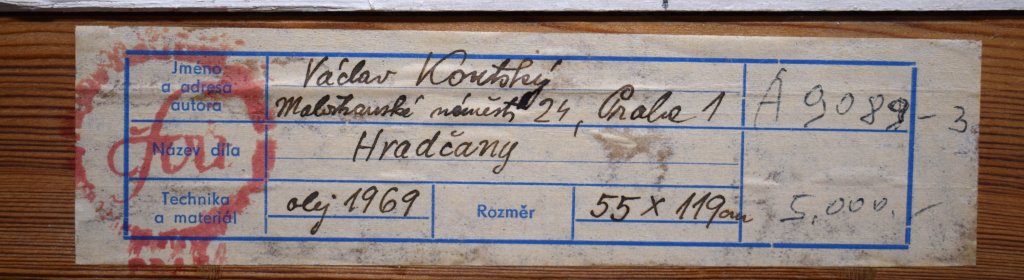 Jméno a adresa autora
Václav Koutský
Malostranské náměstí 24, Praha 1
A 9089 - 3
Název díla
Hradčany
Technika a materiál
olej 1969
Rozměr
55 x 119 cm
5.000.-